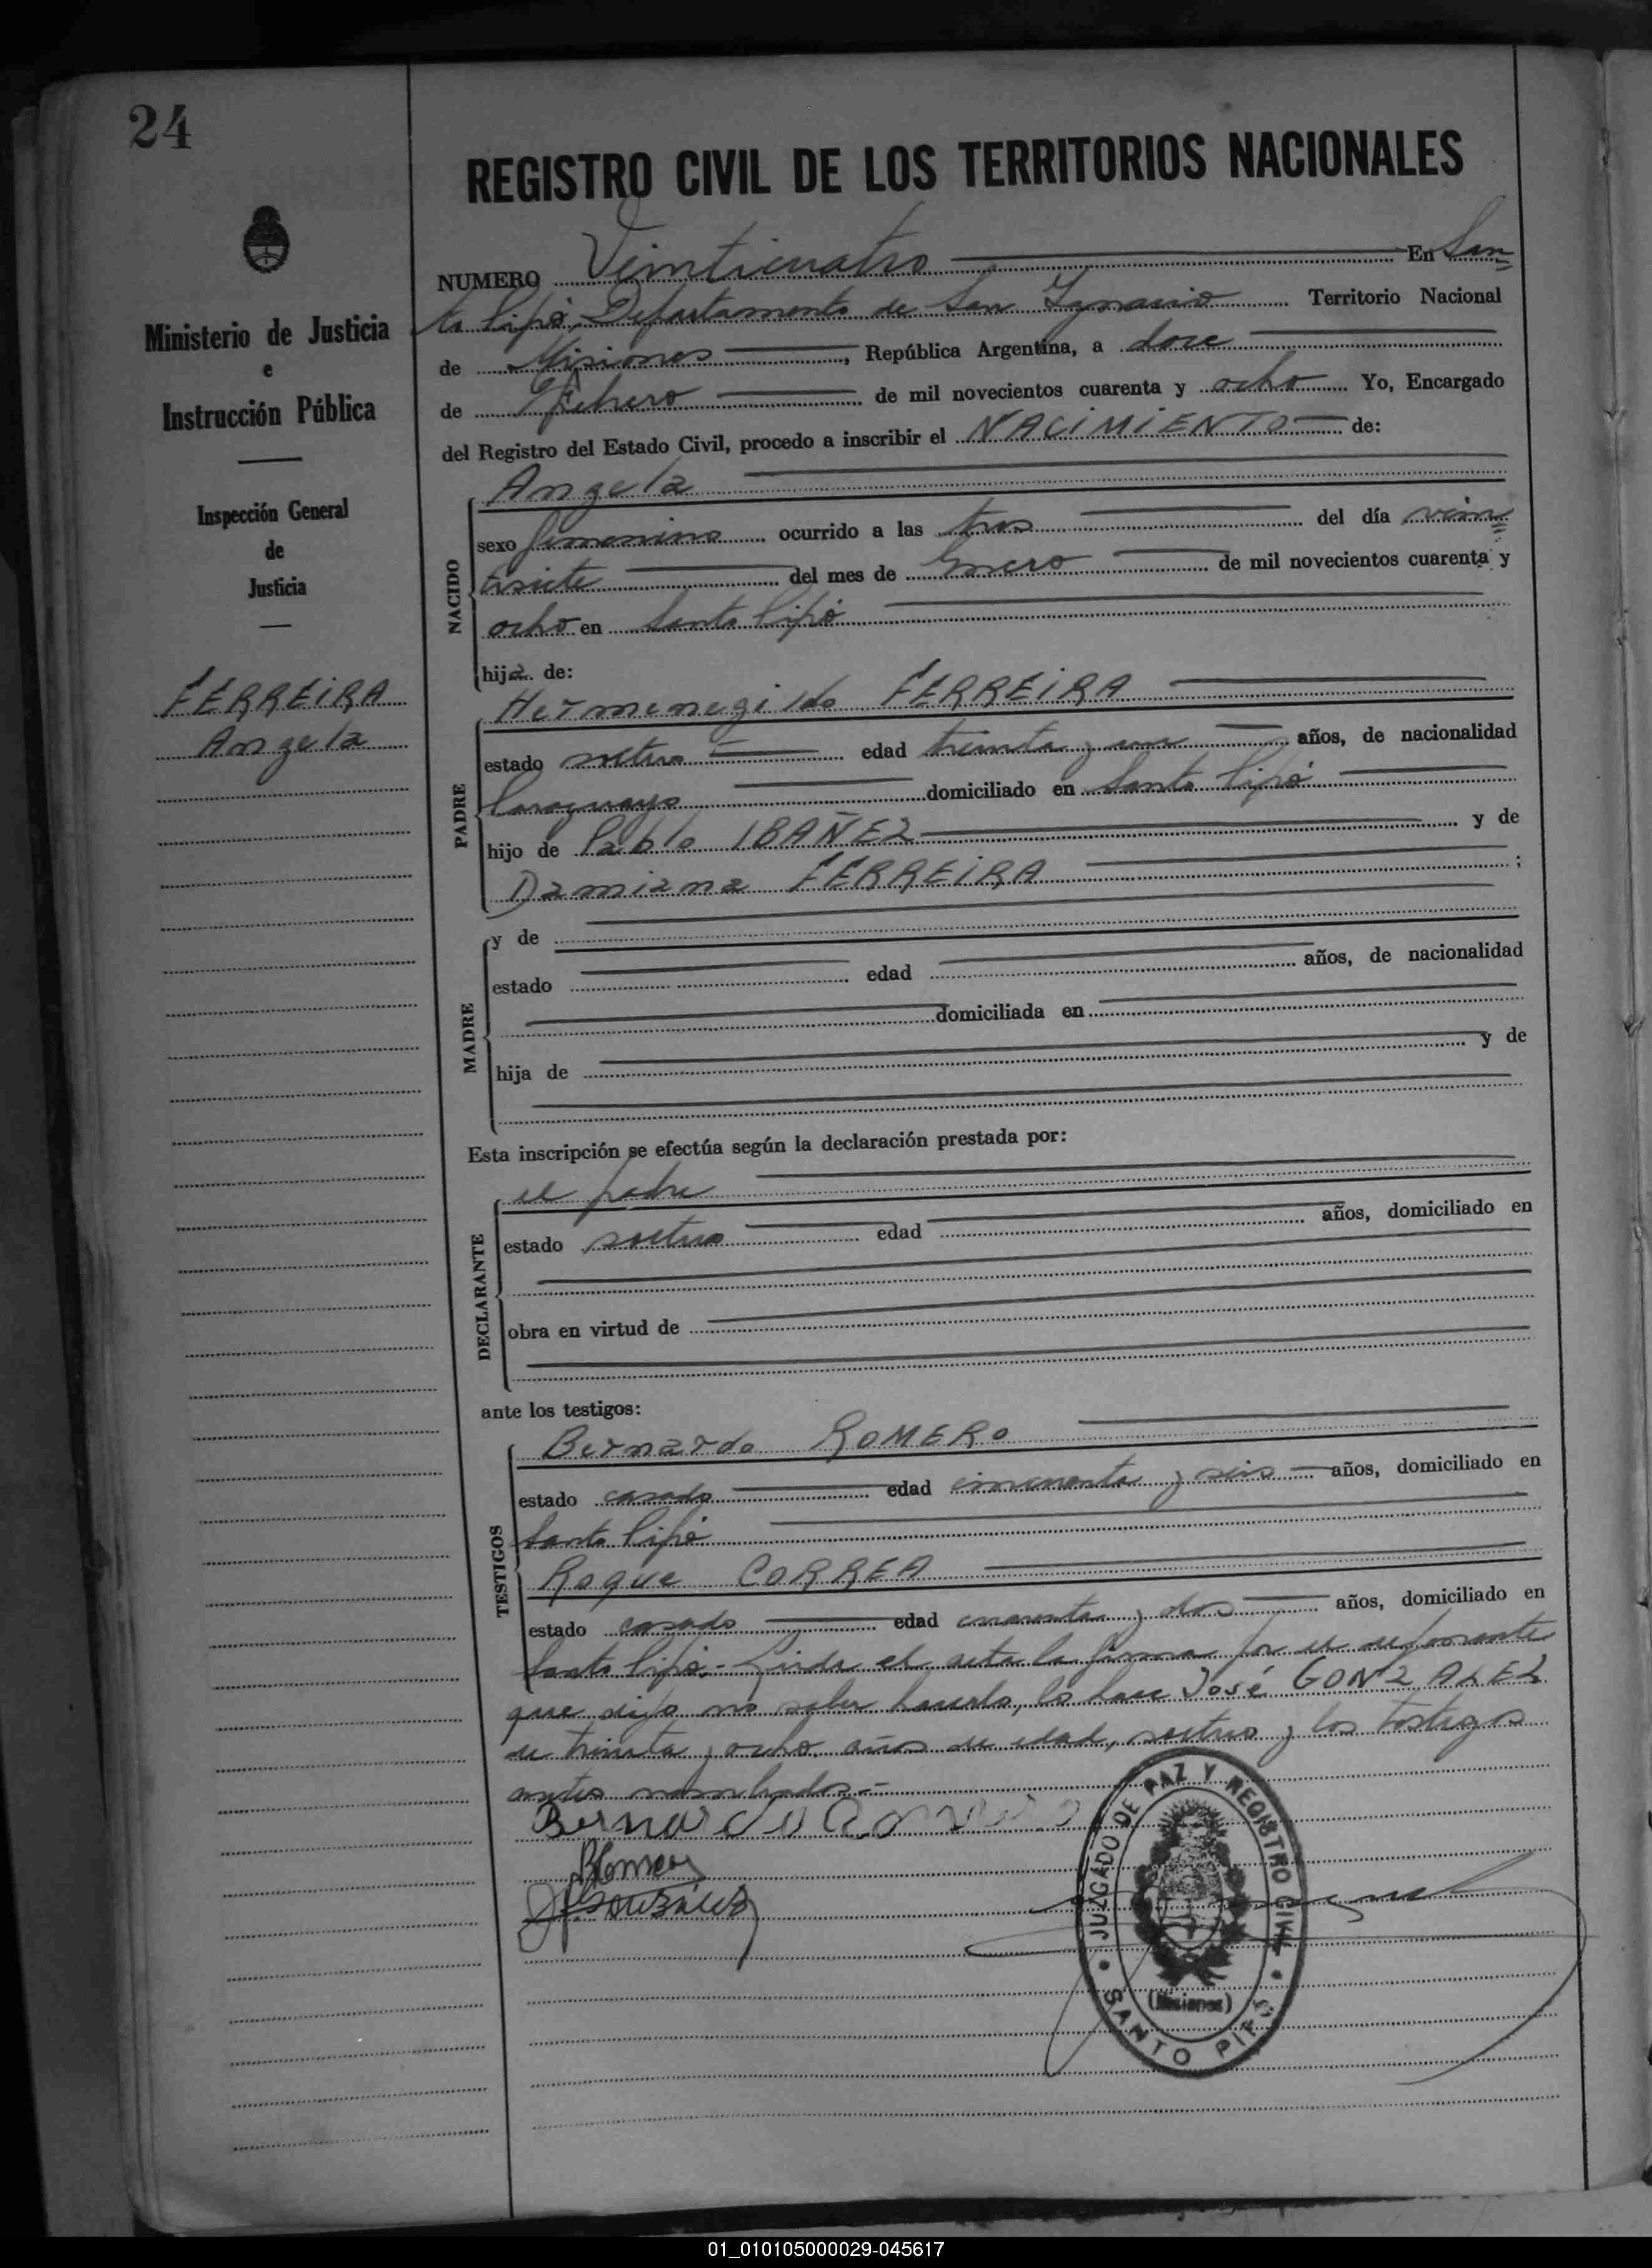 24
REGISTRO CIVIL DE LOS TERRITORIOS NACIONALES
Ministerio de Justicia
e
Instrucción Pública
Inspección General
de
Justicia
FERREIRA
Angela
NUMERO Veinticuatro En San
to Pipó, Departamento de San Ignacio Territorio Nacional
de Misiones, República Argentina, a doce
de Febrero de mil novecientos cuarenta y ocho Yo, Encargado
del Registro del Estado Civil, procedo a inscribir el NACIMIENTO de:
NACIDO
Angela
sexo femenino ocurrido a las tres del día vein
tisiete del mes de Enero de mil novecientos cuarenta y
ocho en Santo Pipó
hija de:
PADRE
Hermenegildo FERREIRA
estado soltero edad treinta y un años, de nacionalidad
Paraguayo domiciliado en Santo Pipó
hijo de Pablo IBAÑEZ y de
Damiana FERREIRA ;
MADRE
y de
estado edad años, de nacionalidad
domiciliada en
hija de y de
Esta inscripción se efectúa según la declaración prestada por:
DECLARANTE
el padre
estado soltero edad años, domiciliado en
obra en virtud de
ante los testigos:
TESTIGOS
Bernardo ROMERO
estado casado edad cincuenta y seis años, domiciliado en
Santo Pipó
Roque CORREA
estado casado edad cuarenta y dos años, domiciliado en
Santo Pipó.- Leida el acta la firma por el deponente
que dijo no saber hacerlo, lo hace José GONZALEZ
de treinta y ocho años de edad, soltero y los testigos
antes nombrados.-
Bernardo Romero
JGonzález
JUZGADO DE PAZ Y REGISTRO CIVIL
(Misiones)
SANTO PIPÓ
01_010105000029-045617